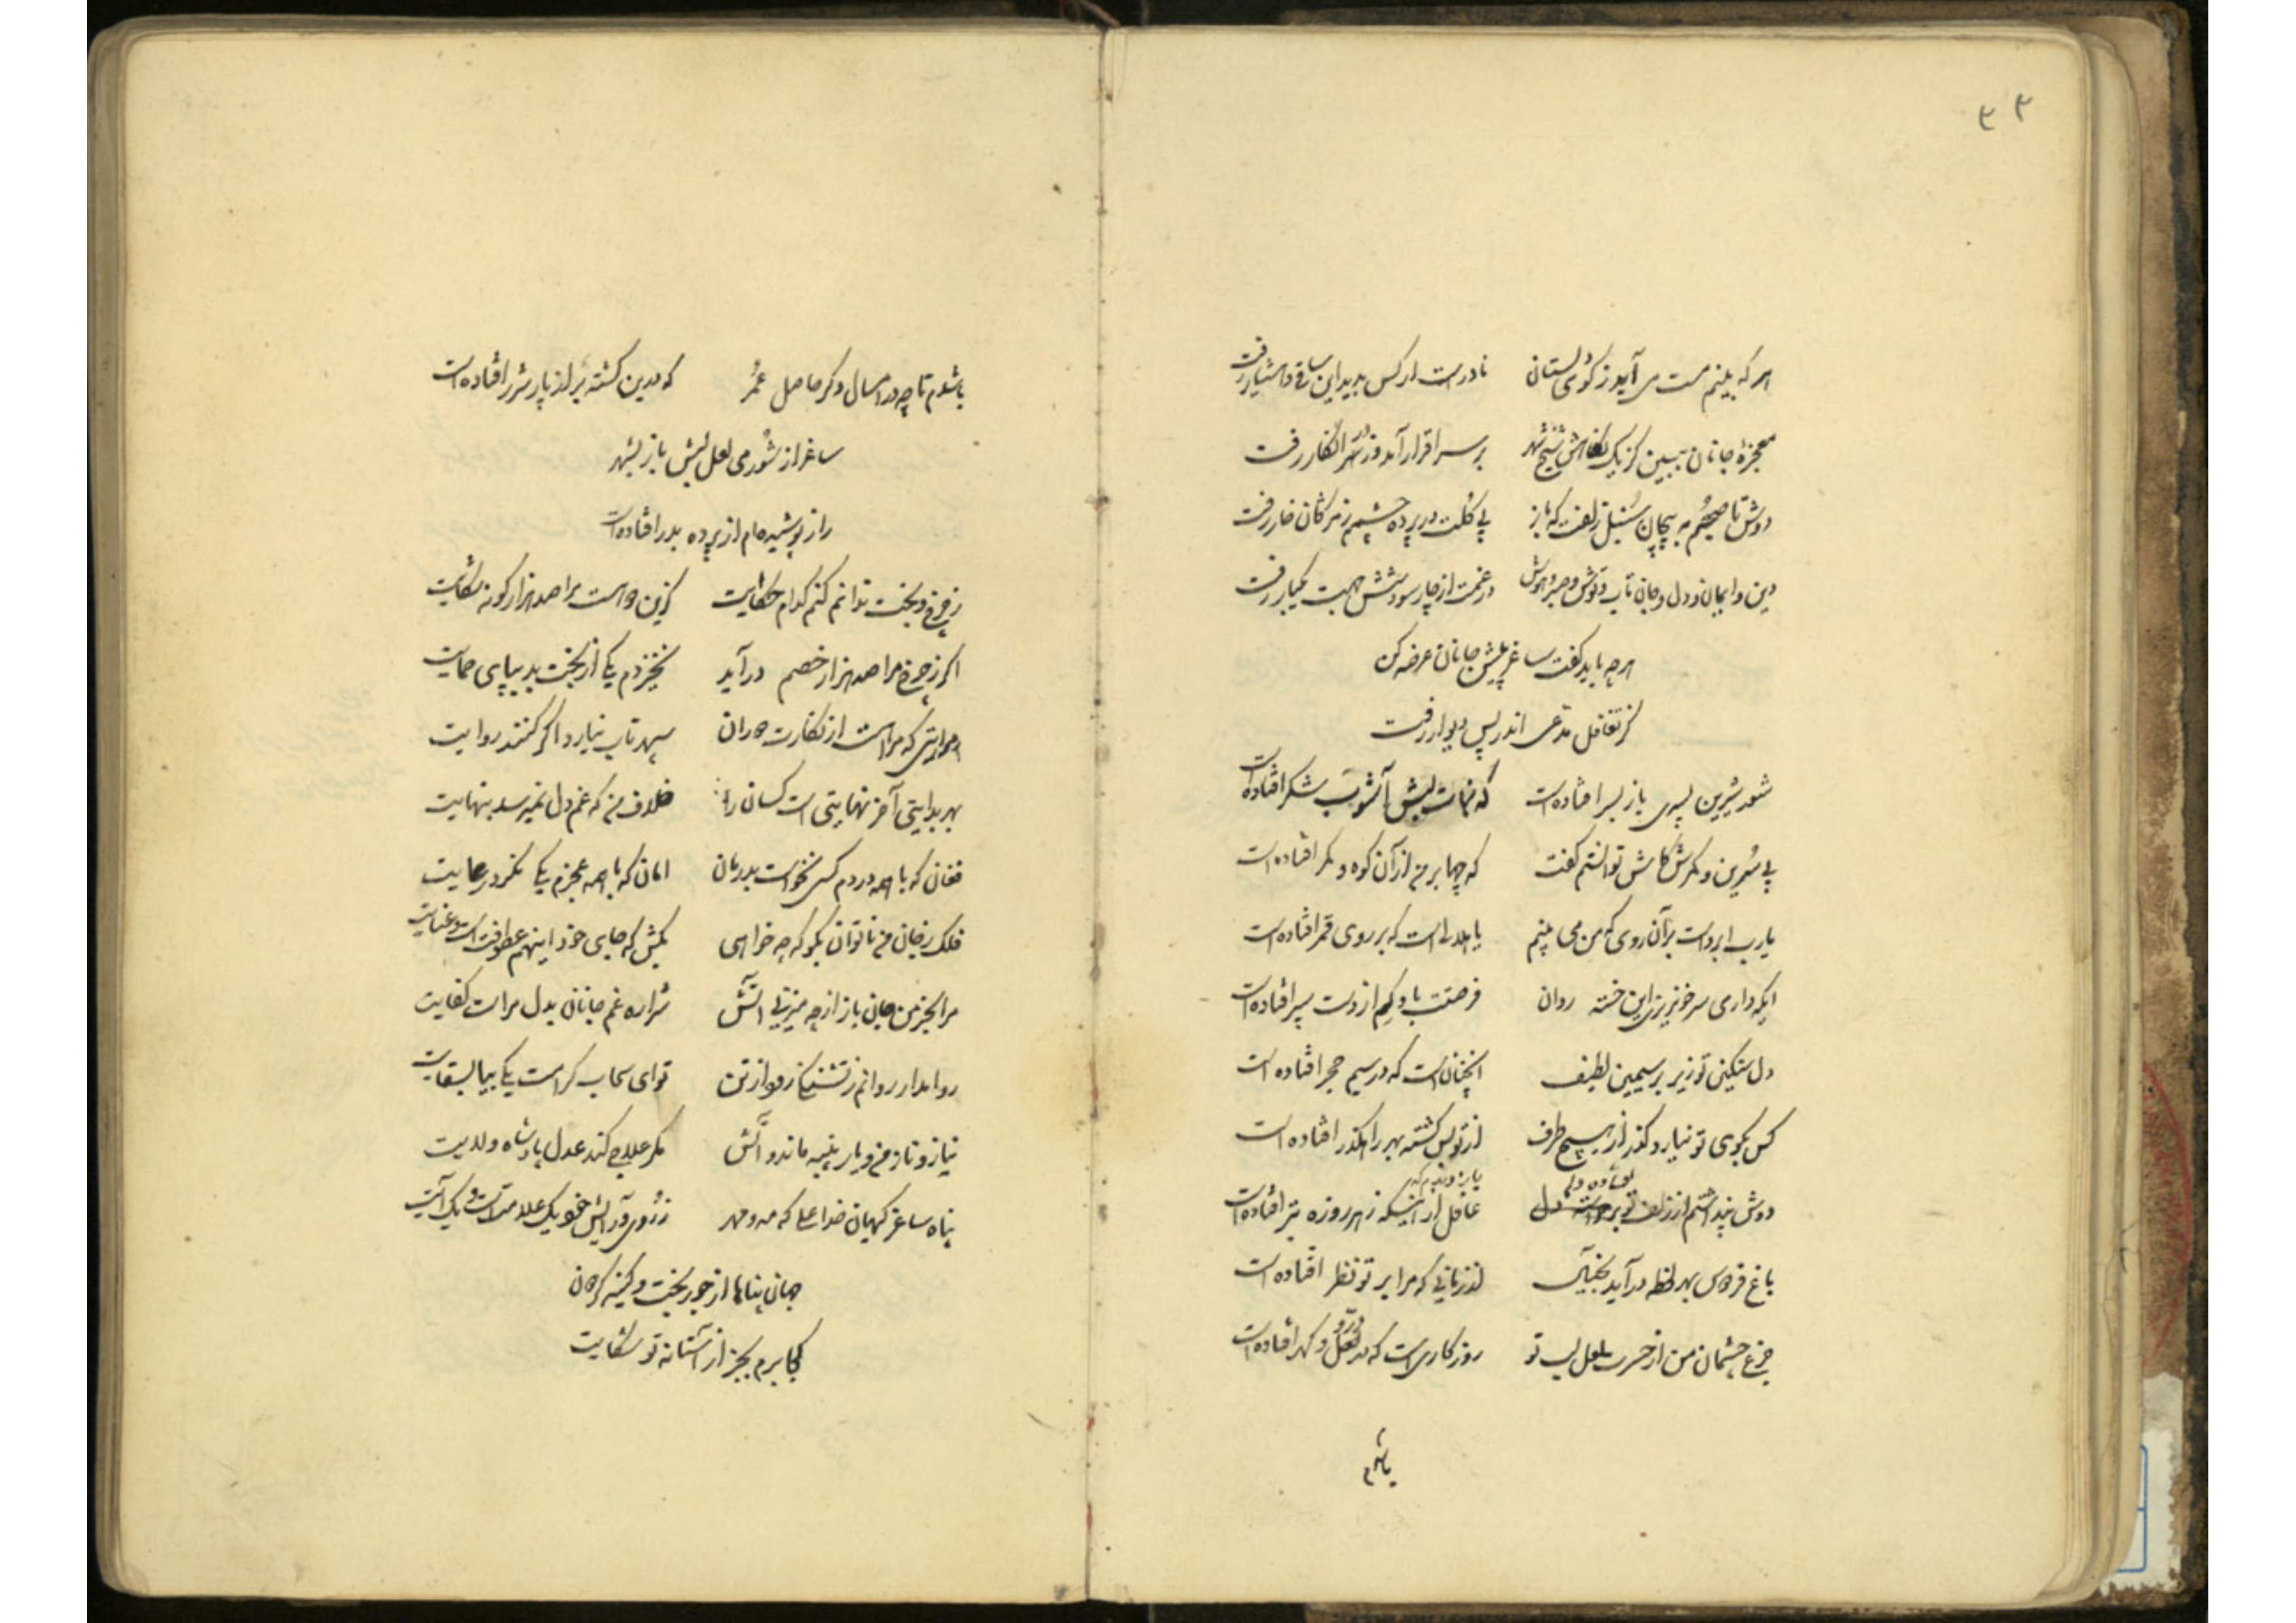 ۳۳
هر که بینم مست می آید ز کوی دلستان نادر است ار کس بدید این ساقی و هشیار رفت
معجزهٔ جانان ببین کز یک نگاهش شیخ شهر بر سر اقرار آمد وز سر انکار رفت
دوش تا صبحم به پیچان سنبل زلفت که باز بی گلت در پردهٔ چشمم ز مژگان خار رفت
دین و ایمان و دل و جان تاب و توش و صبر و هوش در غمت از چار سو و شش جهت یکبار رفت
هر چه باید گفت ساغر پیش جانان عرضه کن
کز تغافل مدعی اندر پس دیوار رفت
شور شیرین پسری باز بسر افتاده است که نبات لبش آشوب شکر افتاده است
پی سرین و کمرش کاش توانستم گفت که چها بر من از آن کوه و کمر افتاده است
یارب ابرو است بر آن روی که من می بینم یا هلال است که بر روی قمر افتاده است
ایکه داری سر خونریزی این خسته روان فرصتت باد که هم از دست سپر افتاده است
دل سنگین تو زیر بر سیمین لطیف آنچنان است که در سیم حجر افتاده است
کس بکوی تو نیارد گذر از هیچ طرف از تو بس کشته بهر راهگذر افتاده است
افتاده دل یا
دوش پنداشتم از زلف تو برخواسته دل غافل از اینکه ز هر روزه بتر افتاده است
باغ فردوس بهر لحظه در آید بخیال از زمانی که مرا بر تو نظر افتاده است
در و
جزع چشمان من از حسرت لعل لب تو روزگاری است که در لعل و گهر افتاده است
باشدم
باشدم تا چه در امسال دگر حاصل عمر که درین کشته بر از پار شرر افتاده است
ساغر از شور می لعل لبش باز بشهر
راز پوشیده ام از پرده بدر افتاده است
ز چرخ و بخت ندانم کنم کدام حکایت کزین دو است مرا صد هزار گونه شکایت
اگر ز چرخ مرا صد هزار خصم در آید نخیزدم یکی از بخت بد بپای حمایت
حرارتی که مرا هست از نگارت دوران سپهر تاب نیارد اگر کنند روایت
بهر بدایتی آخر نهایتی است کسان را خلاف من که غم دل نمیرسد بنهایت
فغان که با همه دردم کسی نخواست بدرمان امان که با همه عجزم یکی نکرد رعایت
فلک ز جان من ناتوان بگو که چه خواهی بکش که جای خود اینهم عطوفت است و عنایت
مرا بخرمن جان باز از چه میزنی آتش شراره غم جانان بدل مراست کفایت
روا مدار روانم ز تشنگی رود از تن تو ای سحاب کرامت یکی بیا بسقایت
نیاز و ناز من و یار پنبه ماند و آتش مگر علاج کند عدل پادشاه ولایت
پناه ساغر کیهان خدا علی که مه و مهر ز روی و رایش خود یک علامت است و یک آیت
جهان پناها از جور بخت و کینه گردون
کجا برم بجز از آستانه تو شکایت